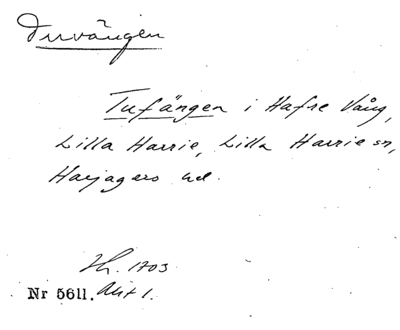 Duvängen
Tufängen i Hafre Vång,
Lilla Harrie, Lilla Harrie sn,
Harjagers hd.
1703
Nr 5611. Akt 1.